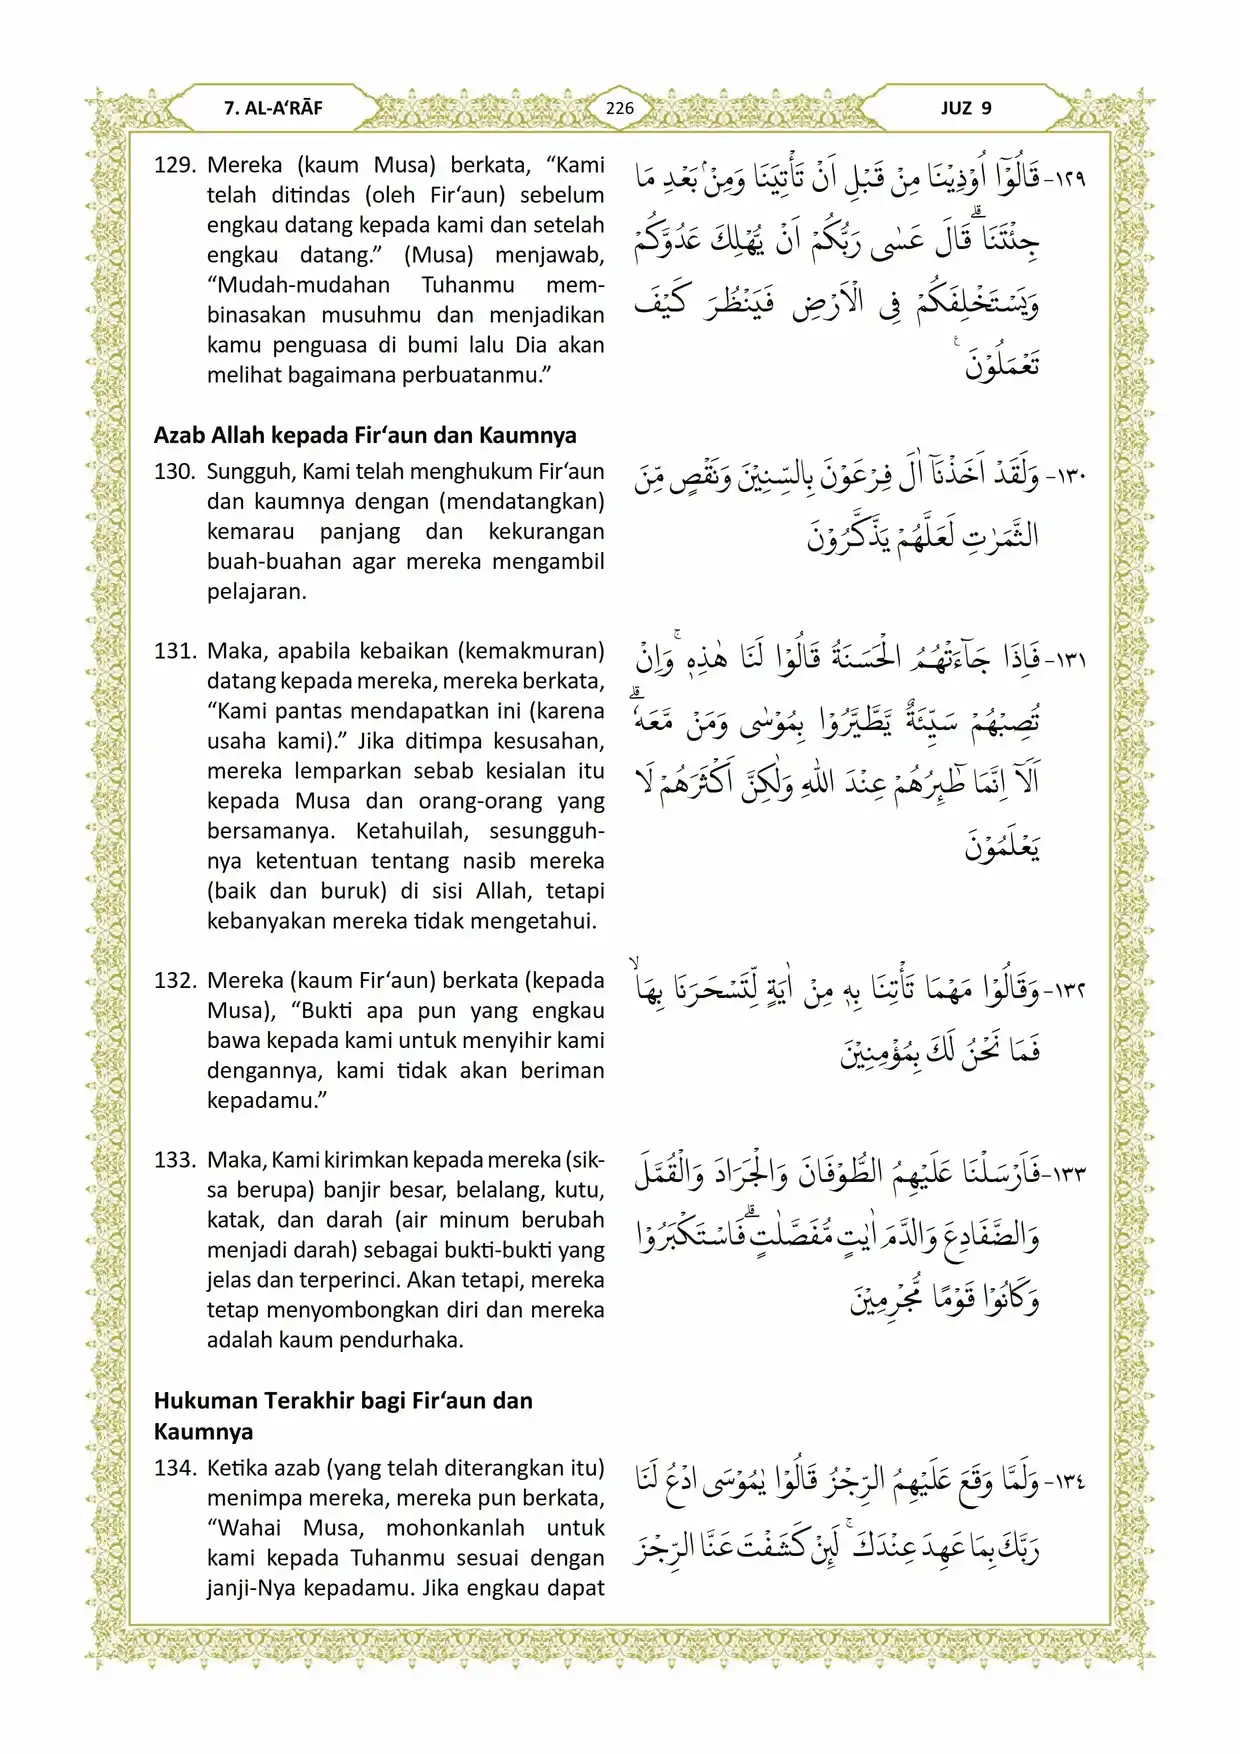 7. AL-A‘RĀF
226
JUZ 9
129. Mereka (kaum Musa) berkata, “Kami
telah ditindas (oleh Fir‘aun) sebelum
engkau datang kepada kami dan setelah
engkau datang.” (Musa) menjawab,
“Mudah-mudahan Tuhanmu mem-
binasakan musuhmu dan menjadikan
kamu penguasa di bumi lalu Dia akan
melihat bagaimana perbuatanmu.”
١٢٩- قَالُوْٓا اُوْذِيْنَا مِنْ قَبْلِ اَنْ تَأْتِيَنَا وَمِنْۢ بَعْدِ مَا
جِئْتَنَا ۗقَالَ عَسٰى رَبُّكُمْ اَنْ يُّهْلِكَ عَدُوَّكُمْ
وَيَسْتَخْلِفَكُمْ فِى الْاَرْضِ فَيَنْظُرَ كَيْفَ
تَعْمَلُوْنَ ࣖ
Azab Allah kepada Fir‘aun dan Kaumnya
130. Sungguh, Kami telah menghukum Fir‘aun
dan kaumnya dengan (mendatangkan)
kemarau panjang dan kekurangan
buah-buahan agar mereka mengambil
pelajaran.
١٣٠- وَلَقَدْ اَخَذْنَآ اٰلَ فِرْعَوْنَ بِالسِّنِيْنَ وَنَقْصٍ مِّنَ
الثَّمَرٰتِ لَعَلَّهُمْ يَذَّكَّرُوْنَ
131. Maka, apabila kebaikan (kemakmuran)
datang kepada mereka, mereka berkata,
“Kami pantas mendapatkan ini (karena
usaha kami).” Jika ditimpa kesusahan,
mereka lemparkan sebab kesialan itu
kepada Musa dan orang-orang yang
bersamanya. Ketahuilah, sesungguh-
nya ketentuan tentang nasib mereka
(baik dan buruk) di sisi Allah, tetapi
kebanyakan mereka tidak mengetahui.
١٣١- فَاِذَا جَاۤءَتْهُمُ الْحَسَنَةُ قَالُوْا لَنَا هٰذِهٖ ۚوَاِنْ
تُصِبْهُمْ سَيِّئَةٌ يَّطَّيَّرُوْا بِمُوْسٰى وَمَنْ مَّعَهٗ ۗ
اَلَآ اِنَّمَا طٰۤىِٕرُهُمْ عِنْدَ اللّٰهِ وَلٰكِنَّ اَكْثَرَهُمْ لَا
يَعْلَمُوْنَ
132. Mereka (kaum Fir‘aun) berkata (kepada
Musa), “Bukti apa pun yang engkau
bawa kepada kami untuk menyihir kami
dengannya, kami tidak akan beriman
kepadamu.”
١٣٢- وَقَالُوْا مَهْمَا تَأْتِنَا بِهٖ مِنْ اٰيَةٍ لِّتَسْحَرَنَا بِهَاۙ
فَمَا نَحْنُ لَكَ بِمُؤْمِنِيْنَ
133. Maka, Kami kirimkan kepada mereka (sik-
sa berupa) banjir besar, belalang, kutu,
katak, dan darah (air minum berubah
menjadi darah) sebagai bukti-bukti yang
jelas dan terperinci. Akan tetapi, mereka
tetap menyombongkan diri dan mereka
adalah kaum pendurhaka.
١٣٣- فَاَرْسَلْنَا عَلَيْهِمُ الطُّوْفَانَ وَالْجَرَادَ وَالْقُمَّلَ
وَالضَّفَادِعَ وَالدَّمَ اٰيٰتٍ مُّفَصَّلٰتٍۗ فَاسْتَكْبَرُوْا
وَكَانُوْا قَوْمًا مُّجْرِمِيْنَ
Hukuman Terakhir bagi Fir‘aun dan
Kaumnya
134. Ketika azab (yang telah diterangkan itu)
menimpa mereka, mereka pun berkata,
“Wahai Musa, mohonkanlah untuk
kami kepada Tuhanmu sesuai dengan
janji-Nya kepadamu. Jika engkau dapat
١٣٤- وَلَمَّا وَقَعَ عَلَيْهِمُ الرِّجْزُ قَالُوْا يٰمُوْسَى ادْعُ لَنَا
رَبَّكَ بِمَا عَهِدَ عِنْدَكَ ۚ لَىِٕنْ كَشَفْتَ عَنَّا الرِّجْزَ